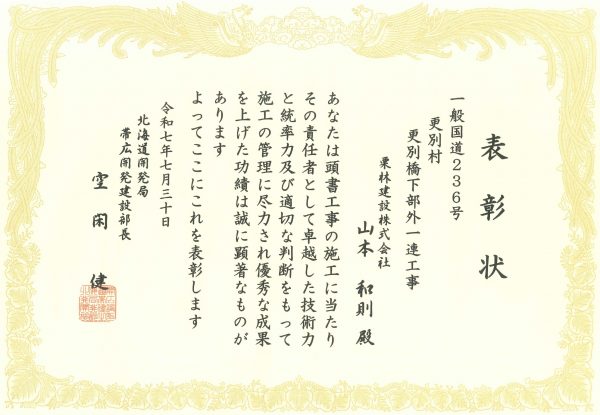 表彰状
一般国道２３６号
更別村
更別橋下部外一連工事
栗林建設株式会社
山本 和則 殿
あなたは頭書工事の施工に当たり
その責任者として卓越した技術力
と統率力及び適切な判断をもって
施工の管理に尽力され優秀な成果
を上げた功績は誠に顕著なものが
あります
よってここにこれを表彰します
令和七年七月三十日
北海道開発局
帯広開発建設部長
空閑 健